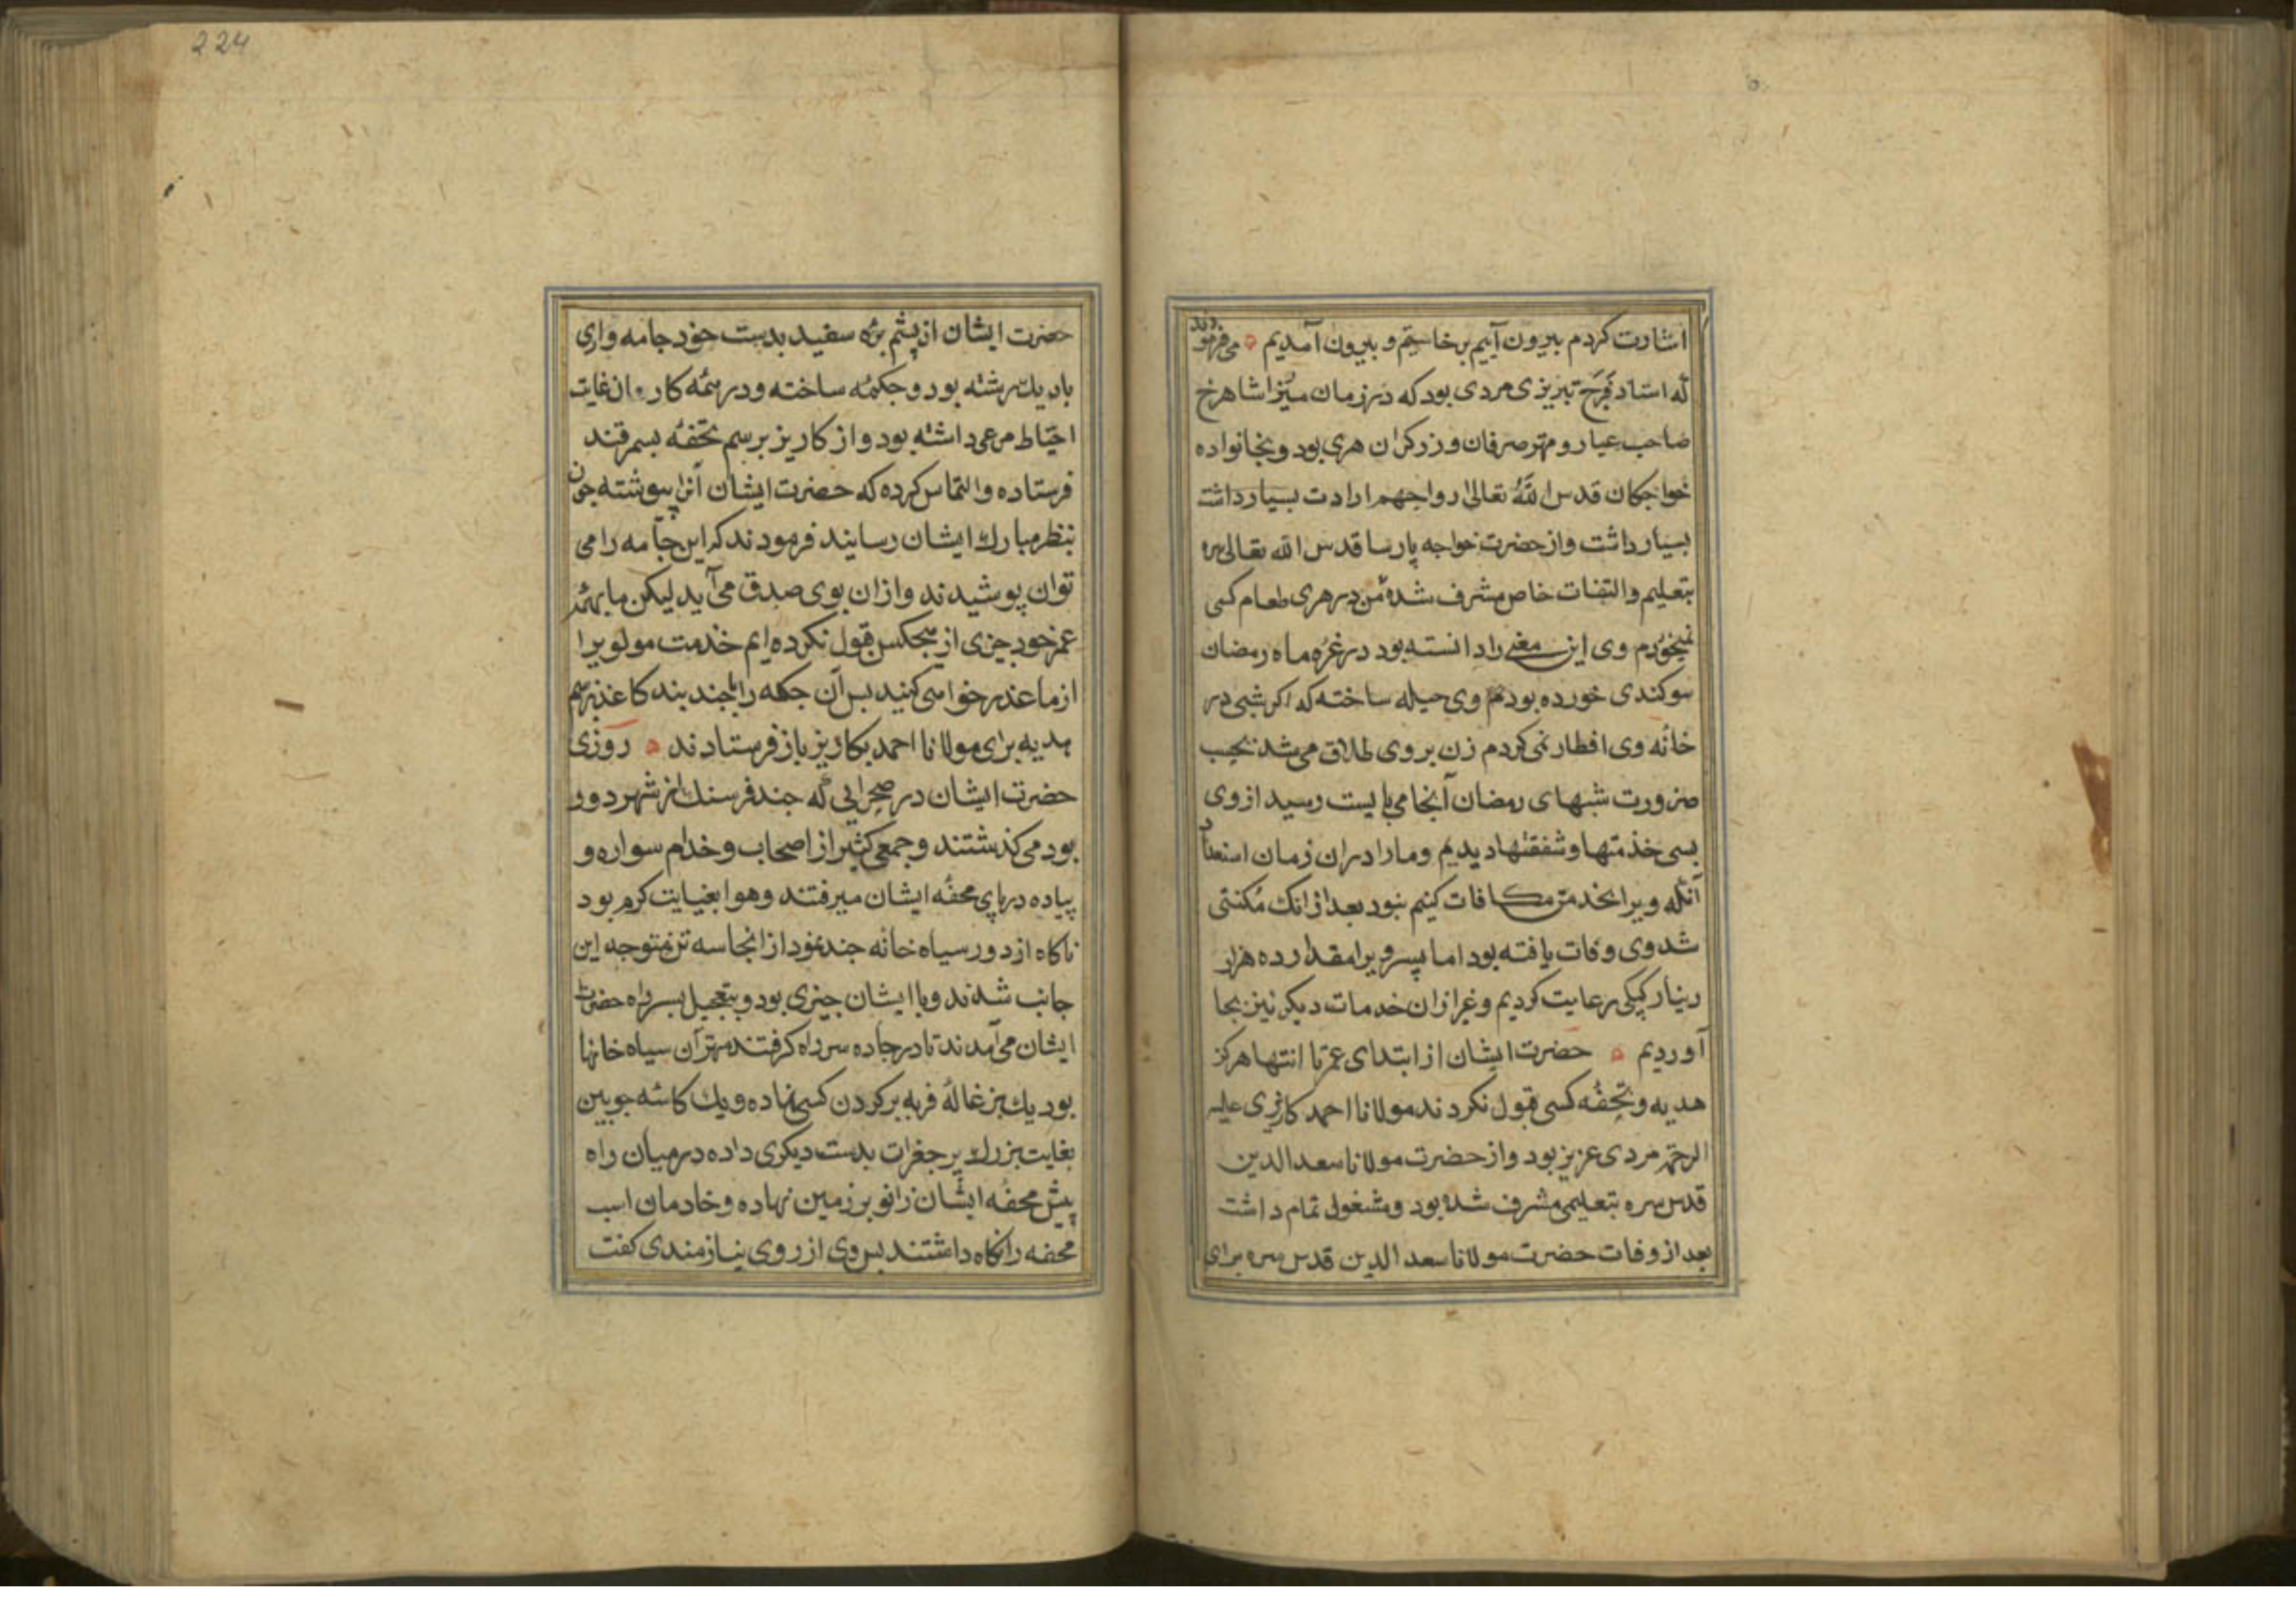 اشارت کردم بیرون آییم برخاستیم و بیرون آمدیم می فرمودند
که استاد فرخ تبریزی مردی بود که در زمان میرزا شاهرخ
صاحب عیار و مهتر صرفان و زرکران هری بود و بخانواده
خواجکان قدس الله تعالی ارواحهم ارادت بسیار داشت
بسیار داشت و از حضرت خواجه پارسا قدس الله تعالی سره
بتعلیم و التفات خاص مشرف شده من در هری طعام کسی
نمیخوردم وی این معنی را دانسته بود در غره ماه رمضان
سوکندی خورده بودم وی حیله ساخته که اکر شبی در
خانه وی افطار نمی کردم زن بر وی طلاق می شد بحسب
ضرورت شبهای رمضان آنجا می بایست رسید از وی
بسی خدمتها و شفقتها دیدیم و ما را در آن زمان استعداد
آنکه ویرا بخدمتی مکافات کنیم نبود بعد از انک مکنتی
شد وی وفات یافته بود اما پسر ویرا مقدار ده هزار
دینار کپکی رعایت کردیم و غیر از آن خدمات دیکر نیز بجا
آوردیم حضرت ایشان از ابتدای عمر تا انتها هرکز
هدیه و تحفه کسی قبول نکردند مولانا احمد کاریزی علیه
الرحمة مردی عزیز بود و از حضرت مولانا سعد الدین
قدس سره بتعلیمی مشرف شده بود و مشغول تمام داشت
بعد از وفات حضرت مولانا سعد الدین قدس سره برای
224
حضرت ایشان از پشم بره سفید بدست خود جامه واری
باریك رشته بود و چکمه ساخته و در همه کار آن غایت
احتیاط مرعی داشته بود و از کاریز برسم تحفه بسمرقند
فرستاده و التماس کرده که حضرت ایشان آنرا پپوشند چون
بنظر مبارك ایشان رسانید فرمودند که این جامه را می
توان پوشیدند و از ان بوی صدق می آید لیکن ما بهمه
عمر خود چیزی از هیچکس قبول نکرده ایم خدمت مولویرا
از ما عذر خواهی کنید پس آن چکمه را با چند بند کاغذ برسم
هدیه برای مولانا احمد بکاریز باز فرستادند روزی
حضرت ایشان در صحرایی که چند فرسنك از شهر دور
بود می کذشتند و جمعی کثیر از اصحاب و خدام سواره و
پیاده در پای محفه ایشان میرفتند و هوا بغایت کرم بود
ناکاه از دور سیاه خانه چند نمود از انجا سه تن متوجه این
جانب شدند و با ایشان چیزی بود و بتعجیل بسر راه حضرت
ایشان می آمدند تا در جاده سر راه کرفتند مهتر آن سیاه خانها
بود یك بزغاله فربه بر کردن کسی نهاده و یك کاسه چوبین
بغایت بزرك پر جغرات بدست دیکری داده در میان راه
پیش محفه ایشان زانو بر زمین نهاده و خادمان اسب
محفه را نکاه داشتند پس وی از روی نیازمندی کفت